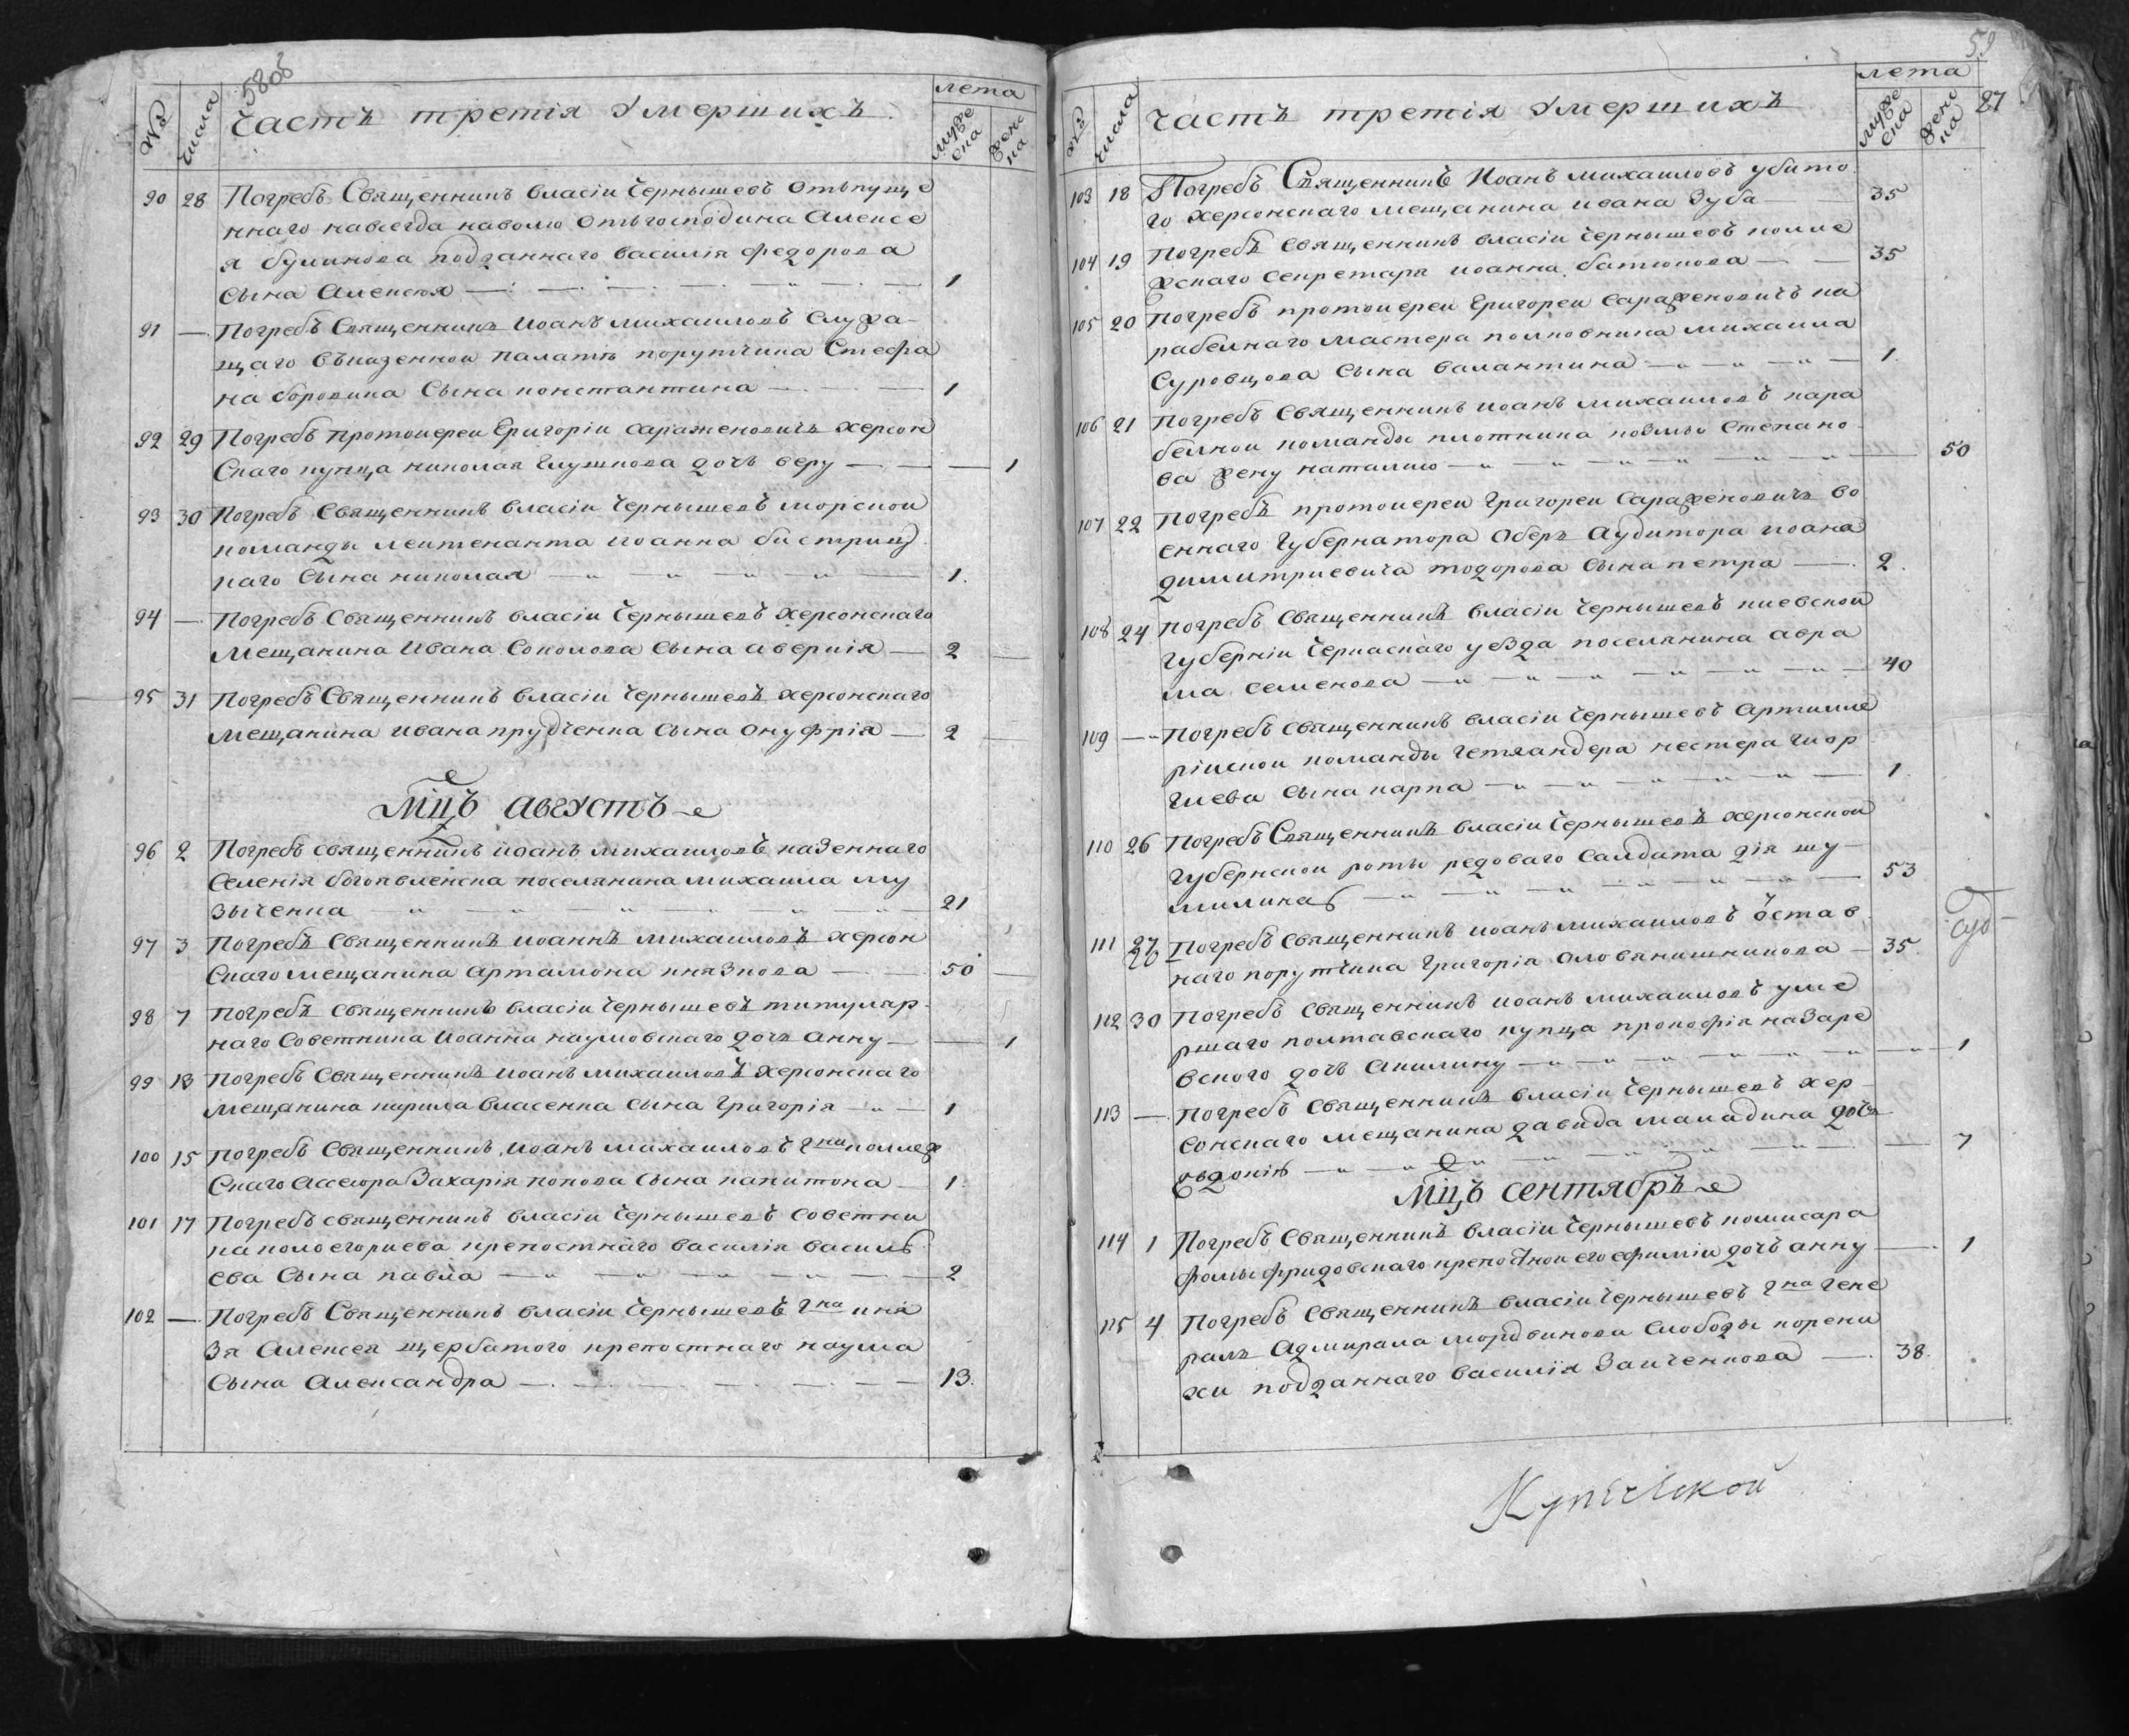 58об
№ числа Часть третія Умершихъ лета мужеска женска
90 28 Погребъ Священникъ власіи Чернышевъ отъпуще
ннаго навсегда наволю отъгосподина Алексе
я буликова подданнаго василія федорова
сына Алексея 1
91 — Погребъ Священникъ Иоанъ михаиловъ Служа
щаго въказеннои палатѣ порутчика Стефа
на боровика Сына константина 1
92 29 Погребъ протоиереи Григоріи сараженовичъ херсон
Скаго купца николая Глушкова дочь веру 1
93 30 Погребъ Священникъ власіи Чернышевъ морскои
команды леитенанта иоанна бистриц
каго Сына николая 1
94 — Погребъ Священникъ власіи Чернышевъ херсонскаго
мещанина Ивана Соколова Сына аверкія 2
95 31 Погребъ Священникъ власіи Чернышевъ херсонскаго
мещанина ивана прудченка Сына онуфрія 2
Мцъ августъ
96 2 Погребъ священникъ иоанъ михаиловъ казеннаго
Селенія богоявленска поселянина михаила му
зыченка 21
97 3 Погребъ Священникъ иоаннъ михаиловъ херсон
Скаго мещанина артамона князкова 50
98 7 Погребъ Священникъ власіи Чернышевъ титуляр
наго Советника Иоанна наумовскаго дочь анну 1
99 13 Погребъ Священникъ иоанъ михаиловъ херсонскаго
мещанина кирила власенка сына Григорія 1
100 15 Погребъ Священникъ Иоанъ михаиловъ Гна коллеж
Скаго Ассесора Захарія попова Сына капитона 1
101 17 Погребъ священникъ власіи Чернышевъ советни
ка кологоргиева крепостнаго василія василь
ева Сына павла 2
102 — Погребъ Священникъ власіи Чернышевъ Гна кня
зя Алексея щербатого крепостнаго наума
Сына Александра 13
59
№ числа Часть третія Умершихъ лета мужеска женска 87
103 18 Погребъ Священникъ Иоанъ михаиловъ убито
го херсонскаго мещанина ивана Зуба 35
104 19 Погребъ Священникъ власіи Чернышевъ колле
жскаго Секретаря иоанна батюкова 35
105 20 Погребъ протоиереи Григореи сараженовичъ ка
рабелнаго мастера полковника михаила
Суровцова Сына валантина 1
106 21 Погребъ Священникъ иоанъ михаиловъ кара
белнои команды плотника козмы Степано
ва жену наталию 50
107 22 Погребъ протоиереи Григореи Сараженовичъ во
еннаго Губернатора Оберъ Аудитора иоана
димитриевича тодорова Сына петра 2
108 24 Погребъ Священникъ власіи Чернышевъ киевской
губерніи Черкаскаго уезда поселянина авра
ма семенова 40
109 — Погребъ Священникъ власіи Чернышевъ Артилле
ріискои команды Гетландера нестера Гиор
гиева Сына карпа 1
110 26 Погребъ Священникъ власіи Чернышевъ херсонскои
Губернскои роты редоваго Салдата дія шу
миликаб 53
111 27 Погребъ Священникъ иоанъ михаиловъ Ѹстав
наго порутчика Григорія оловянишникова 35
112 30 Погребъ Священникъ иоанъ михаиловъ уме
ршаго полтавскаго купца прокофія назаре
вского дочь Акилину 1
113 — Погребъ Священникъ власіи Чернышевъ хер
сонскаго мещанина давида маладика дочь
овдокію 7
Мцъ сентябръ
114 1 Погребъ Священникъ власіи Чернышевъ комисара
фомы фридовскаго крепостнои его ефиміи дочь анну 1
115 4 Погребъ Священникъ власіи Чернышевъ Гна Гене
ралъ Адмирала мордвинова Слободы корени
хи подданнаго василія Заиченкова 38